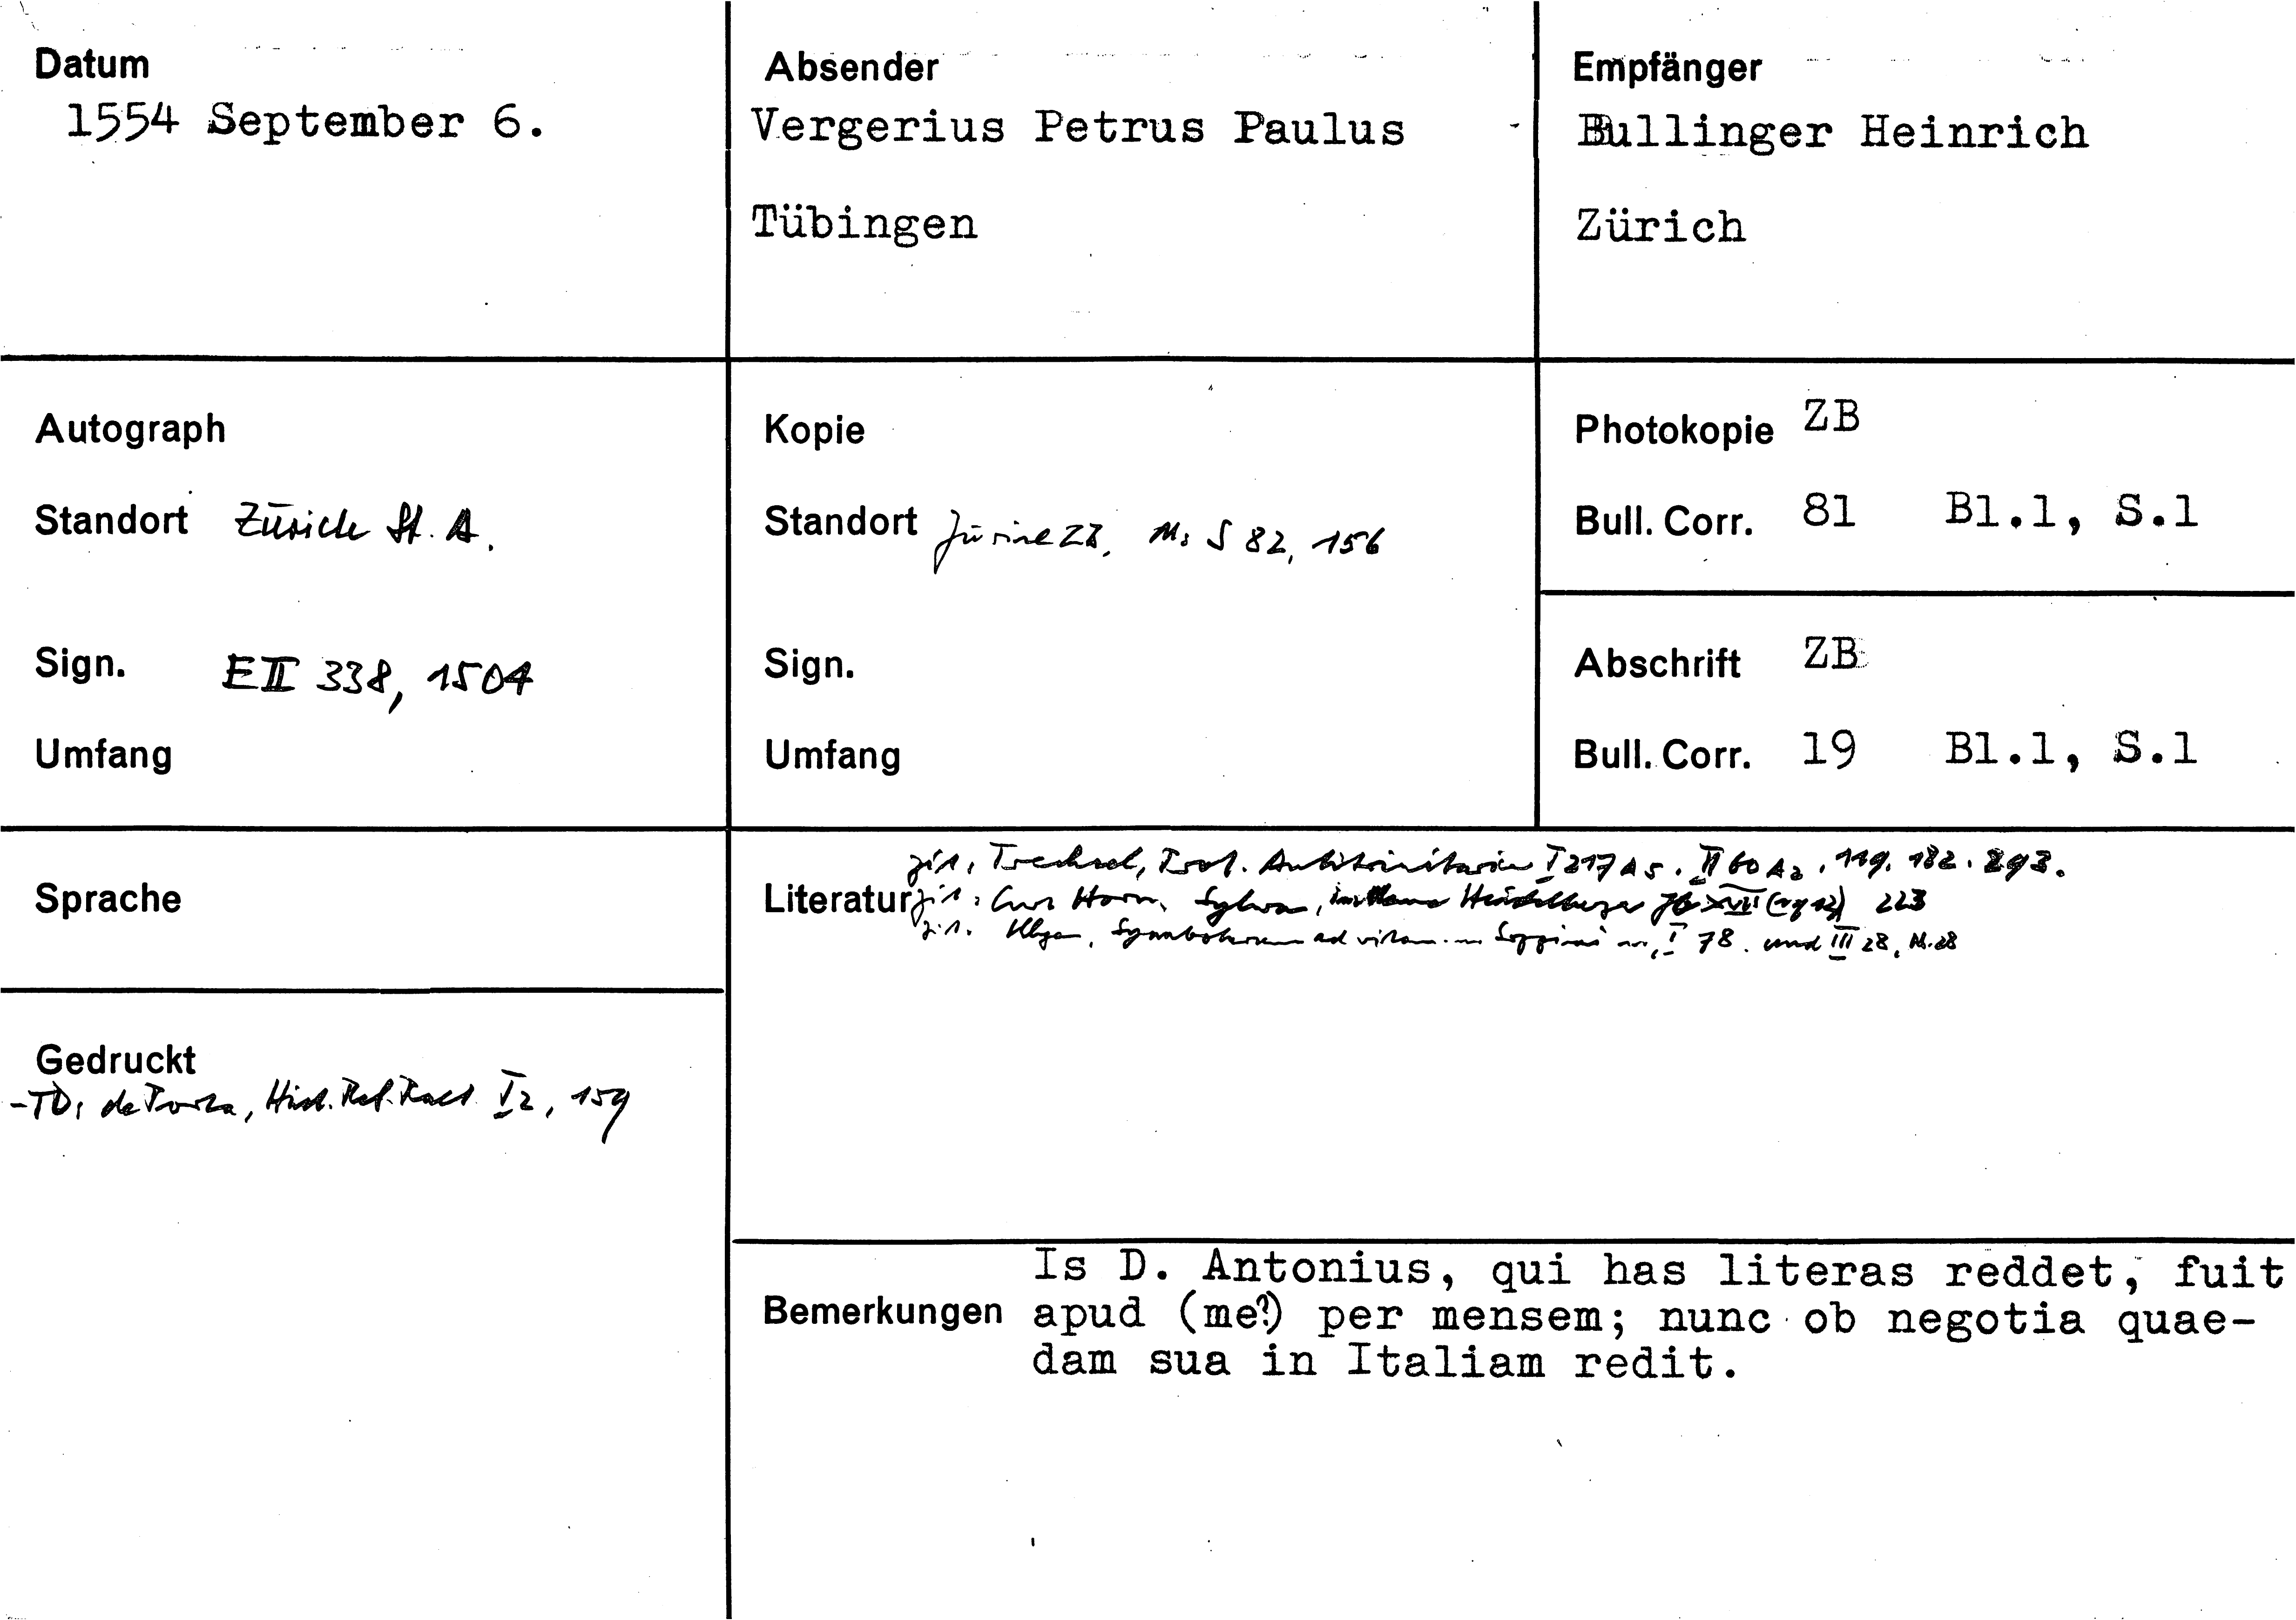 Datum
1554 September 6.
Absender
Vergerius Petrus Paulus
Tübingen
Empfänger
Bullinger Heinrich
Zürich
Autograph
Standort Zürich St. A.
Sign. E II 338, 1504
Umfang
Kopie
Standort Zürich ZB, Ms S 82, 156
Sign.
Umfang
Photokopie ZB
Bull. Corr. 81 Bl.1, S.1
Abschrift ZB
Bull. Corr. 19 Bl.1, S.1
Sprache
Gedruckt
-TD: de Porta, Hist. Ref. Raet. I2, 159
zit. Trechsel, Prot. Antitrinitarier I 217 A5. II 60 A2. 119. 182. 293.
Literatur zit. Curt Horn, Sylvan, Heidelberger Jb XVII 223
zit. Symbolarum ad vitam I 78. und III 28, A. 28
Bemerkungen
Is D. Antonius, qui has literas reddet, fuit
apud (me?) per mensem; nunc ob negotia quae-
dam sua in Italiam redit.